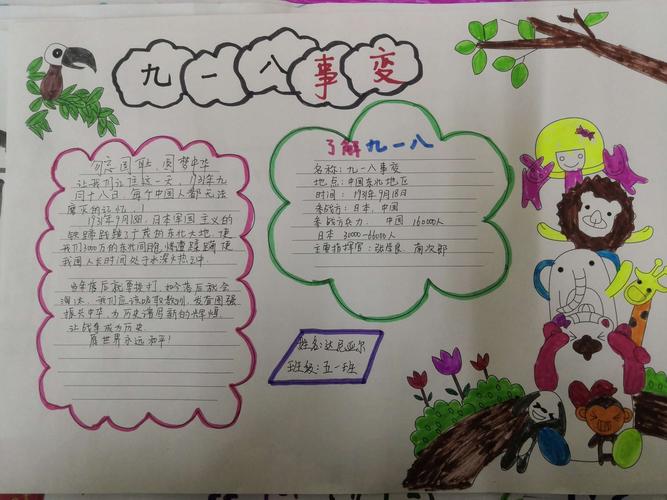 九一八事变
勿忘国耻,圆梦中华
让我们记住这一天,1931年九
月十八日,每个中国人都无法
磨灭的记忆!
1931年9月18日,日本军国主义的
铁蹄践踏了广茂的东北大地,使
我们3000万的东北同胞惨遭蹂躏,使
我国人长时间处于水深火热之中.
当年落后就要挨打,如今落后就会
淘汰.我们应该吸取教训,发奋图强
振兴中华,为历史谱写新的辉煌
让战争成为历史
愿世界永远和平!
了解九一八
名称:九一八事变
地点:中国东北地区
时间:1931年9月18日
参战方:日本,中国
参战方兵力:中国 160000人
日本 30000-66000人
主要指挥官:张学良 南次郎
姓名:达尼亚尔
班级:五一班